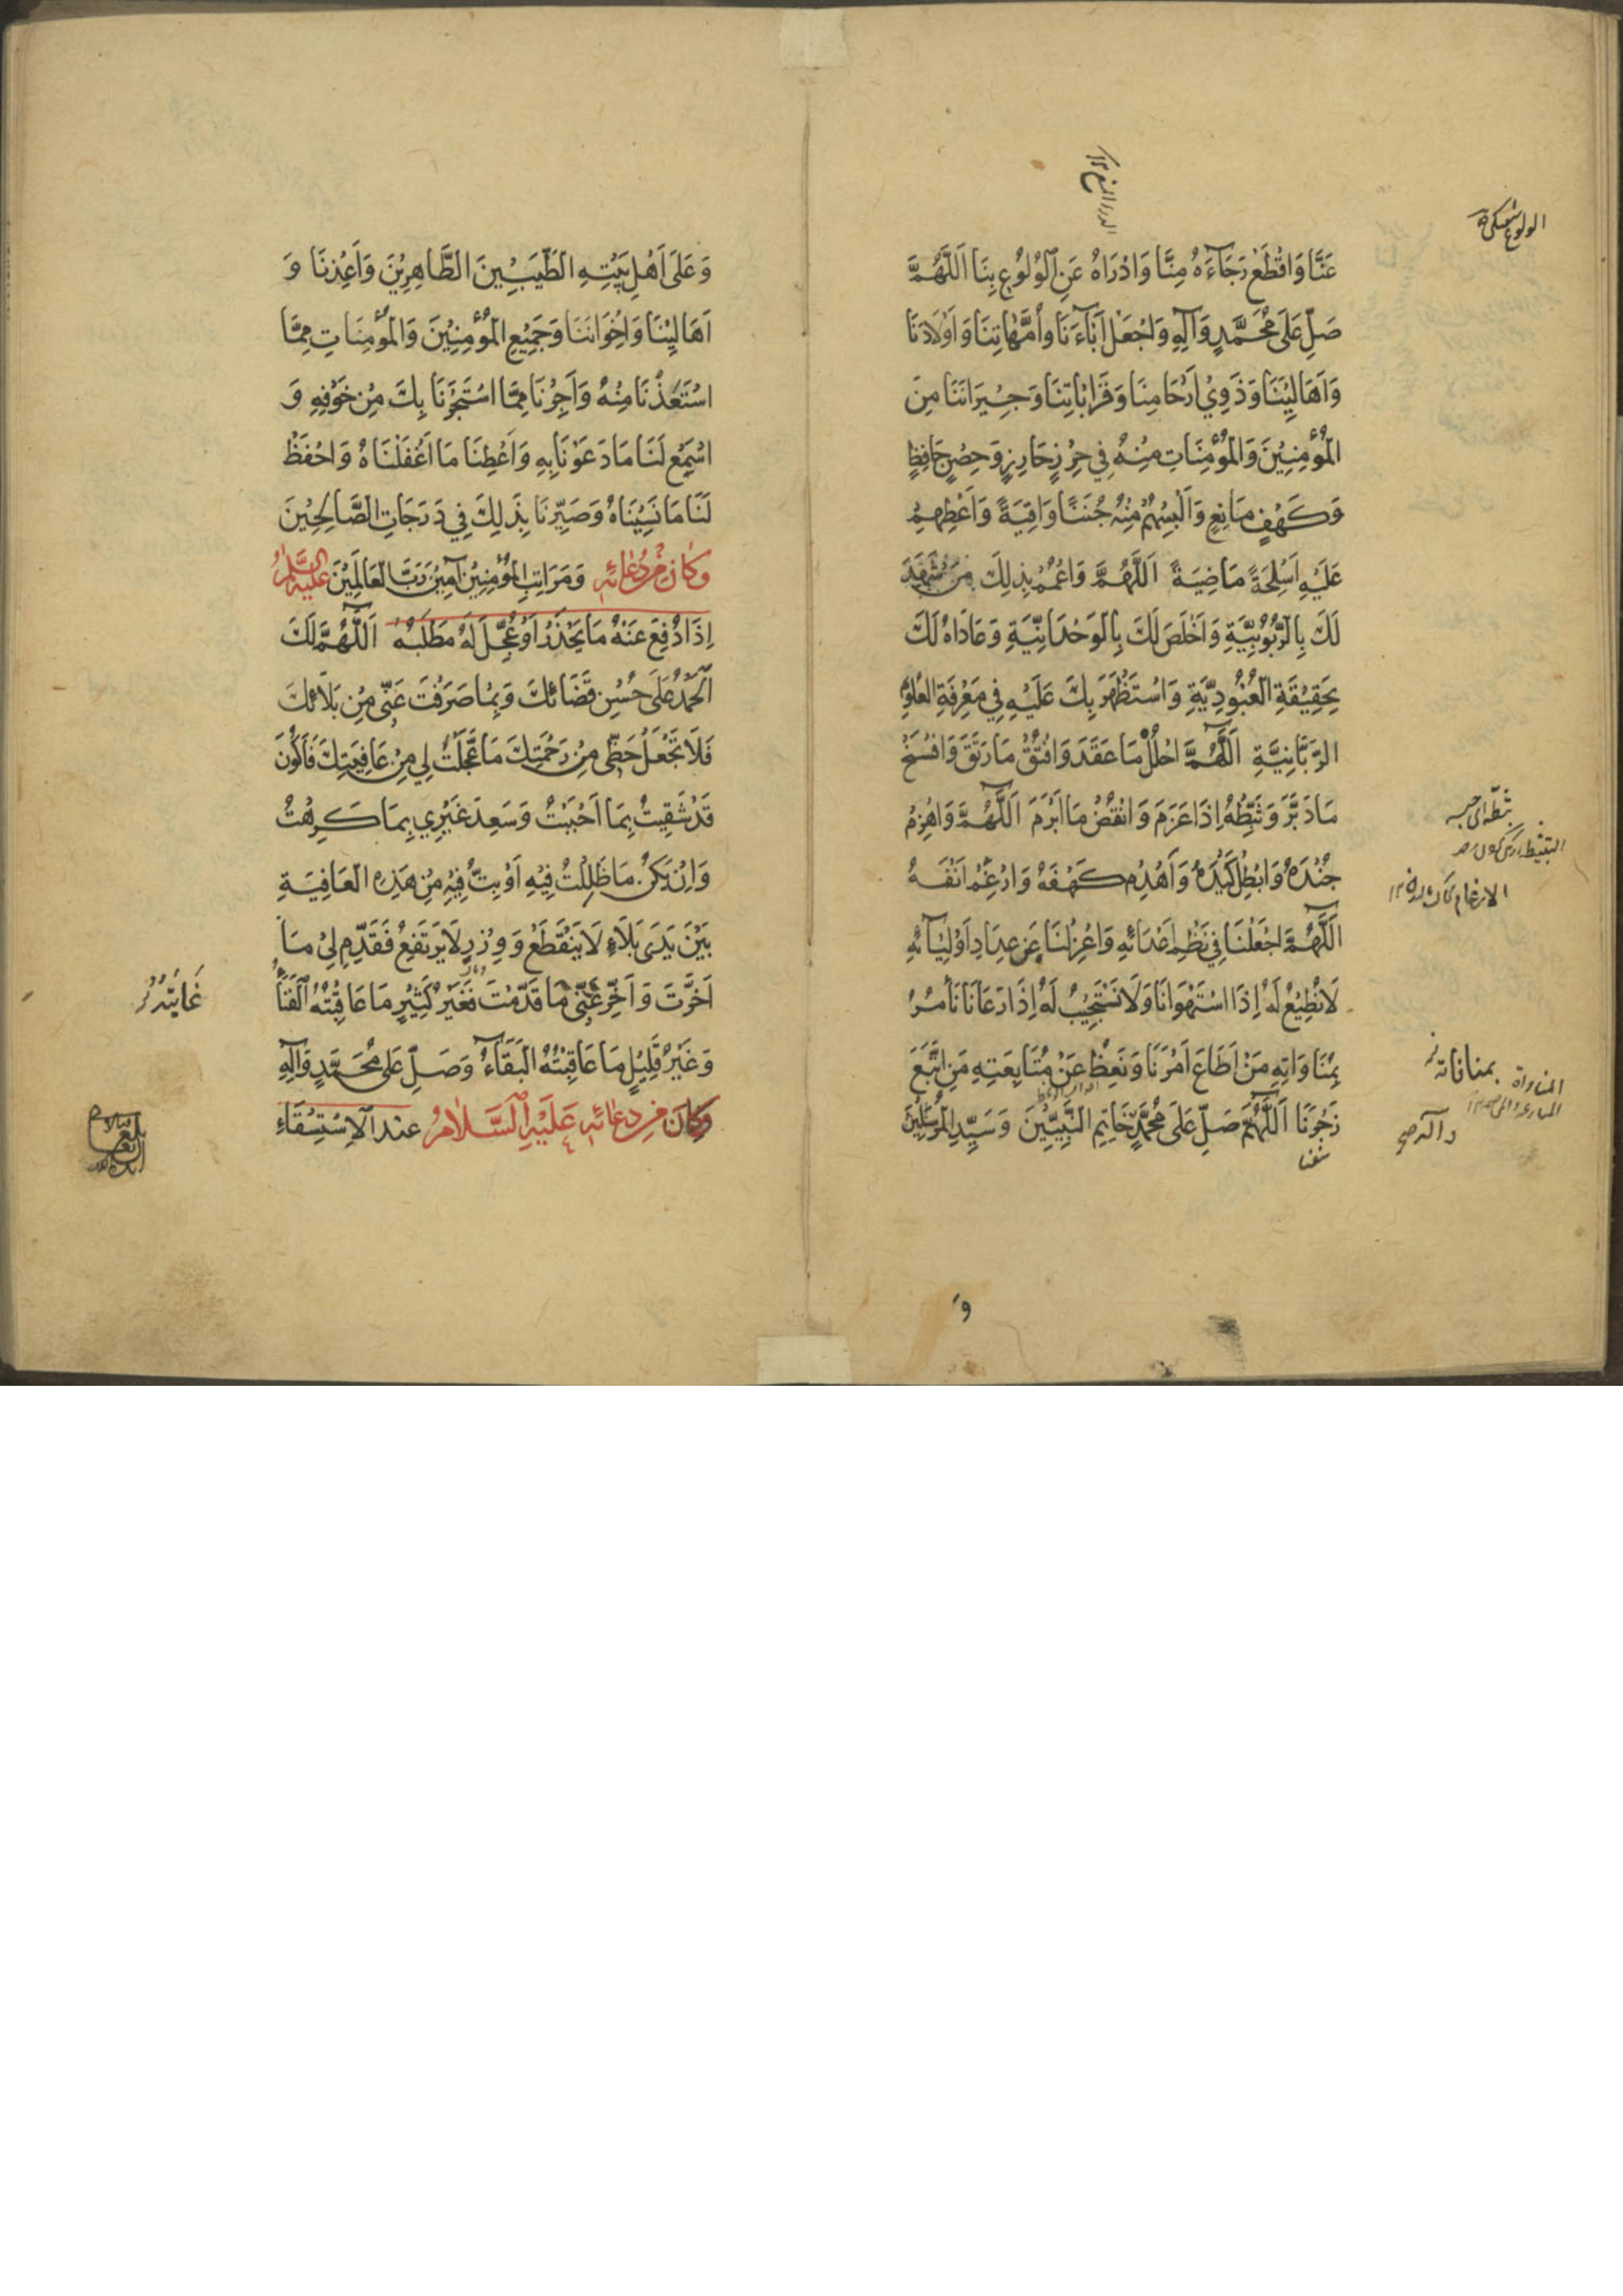 عَنَّا وَاقْطَعْ رَجَآءَهُ مِنَّا وَادْرَاهُ عَنِ الْوُلُوْعِ بِنَا اَللّٰهُمَّ
صَلِّ عَلَى مُحَمَّدٍ وَآلِهِ وَاجْعَلْ اٰبَآءَنَا وَاُمَّهَاتِنَا وَاَوْلَادَنَا
وَاَهَالِيْنَا وَذَوِيْ اَرْحَامِنَا وَقَرَابَاتِنَا وَجِيْرَانَنَا مِنَ
الْمُؤْمِنِيْنَ وَالْمُؤْمِنَاتِ مِنْهُ فِي حِرْزٍ حَارِزٍ وَحِصْنٍ حَافِظٍ
وَكَهْفٍ مَانِعٍ وَاَلْبِسْهُمْ مِنْهُ جُنَنًا وَاقِيَةً وَاَعْطِهِمْ
عَلَيْهِ اَسْلِحَةً مَاضِيَةً اَللّٰهُمَّ وَاعْمُمْ بِذٰلِكَ مَنْ شَهِدَ
لَكَ بِالرُّبُوْبِيَّةِ وَاَخْلَصَ لَكَ بِالْوَحْدَانِيَّةِ وَعَادَاهُ لَكَ
بِحَقِيْقَةِ الْعُبُوْدِيَّةِ وَاسْتَظْهَرَ بِكَ عَلَيْهِ فِي مَعْرِفَةِ الْعُلُوْمِ
الرَّبَّانِيَّةِ اَللّٰهُمَّ احْلُلْ مَا عَقَدَ وَافْتُقْ مَا رَتَقَ وَافْسَخْ
مَا دَبَّرَ وَثَبِّطْهُ اِذَا عَزَمَ وَانْقُضْ مَا اَبْرَمَ اَللّٰهُمَّ وَاهْزِمْ
جُنْدَهُ وَابْطِلْ كَيْدَهُ وَاهْدِمْ كَهْفَهُ وَارْغِمْ اَنْفَهُ
اَللّٰهُمَّ اجْعَلْنَا فِي نَظْمِ اَعْدَائِهِ وَاعْزِلْنَا عَنْ عِدَادِ اَوْلِيَآئِهِ
لَا نُطِيْعُ لَهُ اِذَا اسْتَهْوَانَا وَلَا نَسْتَجِيْبُ لَهُ اِذَا دَعَانَا نَأْمُرُ
بِمُنَاوَاتِهِ مَنْ اَطَاعَ اَمْرَنَا وَنَعِظُ عَنْ مُتَابَعَتِهِ مَنِ اتَّبَعَ
زَجْرَنَا اَللّٰهُمَّ صَلِّ عَلَى مُحَمَّدٍ خَاتِمِ النَّبِيِّيْنَ وَسَيِّدِ الْمُرْسَلِيْنَ
وَ
وَعَلَى اَهْلِ بَيْتِهِ الطَّيِّبِيْنَ الطَّاهِرِيْنَ وَاَعِذْنَا وَ
اَهَالِيْنَا وَاِخْوَانَنَا وَجَمِيْعَ الْمُؤْمِنِيْنَ وَالْمُؤْمِنَاتِ مِمَّا
اسْتَعَذْنَا مِنْهُ وَاَجِرْنَا مِمَّا اسْتَجَرْنَا بِكَ مِنْ خَوْفِهِ وَ
اسْمَعْ لَنَا مَا دَعَوْنَا بِهِ وَاَعْطِنَا مَا اَغْفَلْنَاهُ وَاحْفَظْ
لَنَا مَا نَسِيْنَاهُ وَصَيِّرْنَا بِذٰلِكَ فِي دَرَجَاتِ الصَّالِحِيْنَ
وَمَرَاتِبِ الْمُؤْمِنِيْنَ آمِيْنَ رَبَّ الْعَالَمِيْنَ وكان من دعائه عليه السلام
اِذَا دُفِعَ عَنْهُ مَا يَحْذَرُ اَوْ عُجِّلَ لَهُ مَطْلَبُهُ اَللّٰهُمَّ لَكَ
الْحَمْدُ عَلَى حُسْنِ قَضَائِكَ وَبِمَا صَرَفْتَ عَنِّي مِنْ بَلَائِكَ
فَلَا تَجْعَلْ حَظِّي مِنْ رَحْمَتِكَ مَا عَجَّلْتَ لِي مِنْ عَافِيَتِكَ فَاَكُوْنَ
قَدْ شَقِيْتُ بِمَا اَحْبَبْتُ وَسَعِدَ غَيْرِي بِمَا كَرِهْتُ
وَاِنْ يَكُنْ مَا ظَلِلْتُ فِيْهِ اَوْ بِتُّ فِيْهِ مِنْ هٰذِهِ الْعَافِيَةِ
بَيْنَ يَدَيْ بَلَاءٍ لَا يَنْقَطِعُ وَوِزْرٍ لَا يَرْتَفِعُ فَقَدِّمْ لِيْ مَا
اَخَّرْتَ وَاَخِّرْ عَنِّي مَا قَدَّمْتَ فَغَيْرُ كَثِيْرٍ مَا عَاقِبَتُهُ الْفَنَآءُ
وَغَيْرُ قَلِيْلٍ مَا عَاقِبَتُهُ الْبَقَآءُ وَصَلِّ عَلَى مُحَمَّدٍ وَآلِهِ
وَكَانَ مِنْ دعائه عَلَيْهِ السَّلَامُ عند الْاِسْتِسْقَاءِ